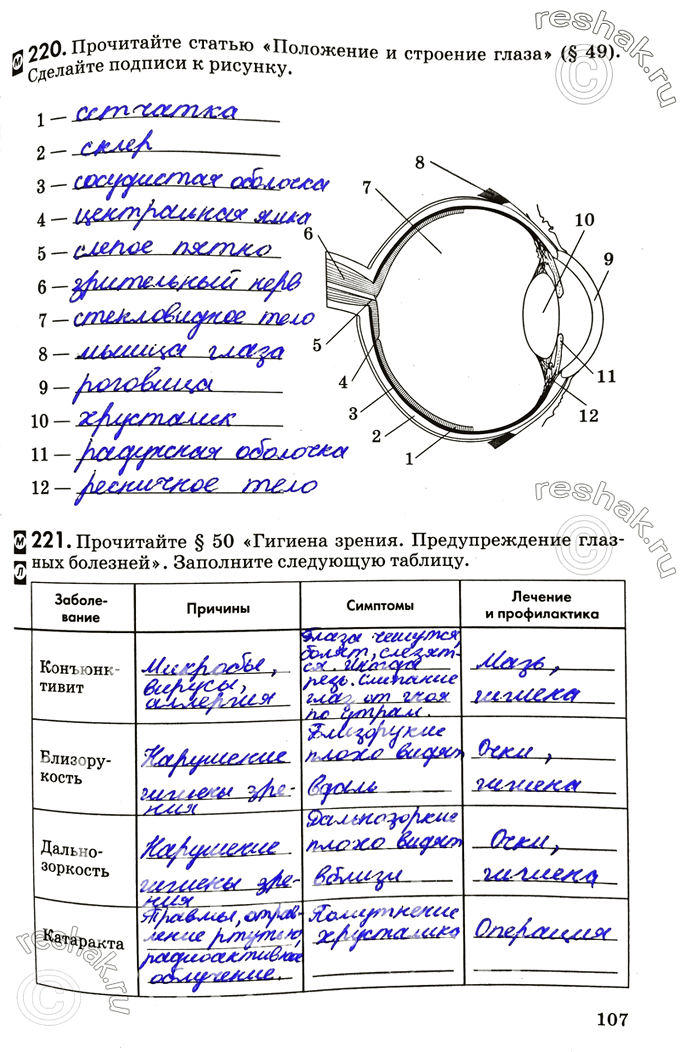 reshak.ru
220. Прочитайте статью «Положение и строение глаза» (§ 49).
Сделайте подписи к рисунку.
1 — сетчатка
2 — склер
3 — сосудистая оболочка
4 — центральная ямка
5 — слепое пятно
6 — зрительный нерв
7 — стекловидное тело
8 — мышца глаза
9 — роговица
10 — хрусталик
11 — радужная оболочка
12 — ресничное тело
8
7
10
6
9
5
4
11
3
12
2
1
reshak.ru
221. Прочитайте § 50 «Гигиена зрения. Предупреждение глаз-
ных болезней». Заполните следующую таблицу.
Заболе-
вание
Причины
Симптомы
Лечение
и профилактика
Конъюнк-
тивит
Микробы,
вирусы,
аллергия
Глаза чешутся,
болят, слезят-
ся иногда
резь. Слипание
глаз от гноя
по утрам.
Мазь,
гигиена
Близору-
кость
Нарушение
гигиены зре-
ния
Близорукие
плохо видят
вдаль
Очки,
гигиена
Дально-
зоркость
Нарушение
гигиены зре-
ния
Дальнозоркие
плохо видят
вблизи
Очки,
гигиена
Катаракта
Травмы, отрав-
ление ртутью,
радиоактивное
облучение.
Помутнение
хрусталика
Операция
reshak.ru
reshak.ru
107